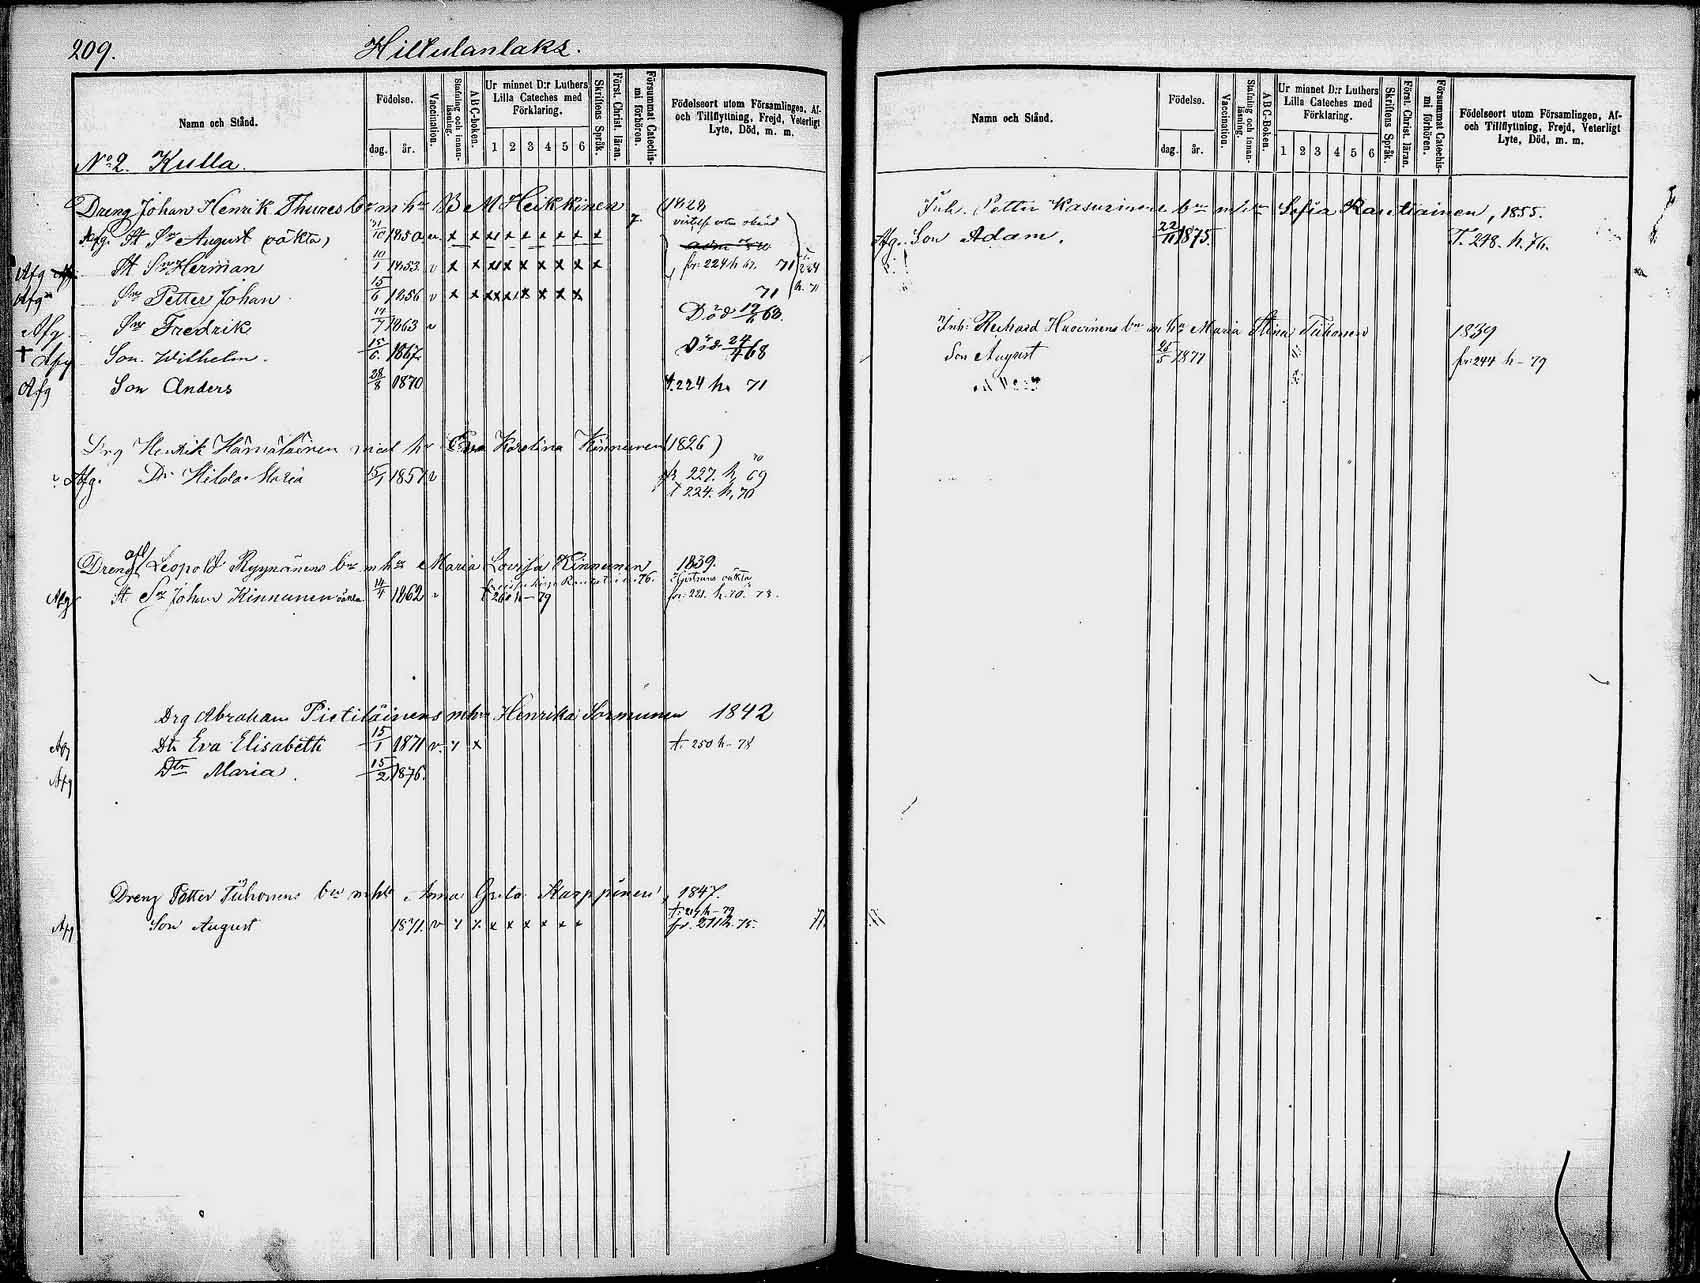 209. Hiltulanlaks.
Namn och Stånd.
Födelse.
dag. år.
Vaccination.
Stafning och innanläsning.
ABC-Boken.
Ur minnet D:r Luthers Lilla Cateches med Förklaring.
1 2 3 4 5 6
Skriftens Språk.
Först. Christ. läran.
Försummat Catechismi förhören.
Födelseort utom Församlingen, Af- och Tillflyttning, Frejd, Veterligt Lyte, Död, m. m.
No 2. Kulla.
Dreng Johan Henrik Thures br m hu B M Heikkinen (1828
Afg. St Sr August (väkta) 1850 x x x x x x x x x
Afg St Sr Herman 10/1 1853 v x x x x x x x x x fr: 224 h 67. 71
Afg Sr Petter Johan 15/6 1856 v x x x x x x x x 71
Afg Sr Fredrik 14/7 1863 v Död 63.
† Afg Son Wilhelm. 15/6 1867 Död 24/4 68
Afg Son Anders 28/8 1870 t. 224 h. 71
Drg Henrik Hämäläinen med h Eva Karolina Kinnunen (1826)
Afg. Dr Hilda Maria 15/1 1857 v fr. 227. h, 69
t 224. h, 70
Dreng Leopold Ryynänens br m hu Maria Lovisa Kinnunen 1839.
Afg St Sr Johan Kinnunen väkta 14/4 1862 v t 260 h - 79
Drg Abraham Pietiläinens m hu Henrika Sormunen 1842
Afg Dtr Eva Elisabeth 15/1 1871 v. x x t. 250 h - 78
Afg Dtr Maria. 15/2 1876.
Dreng Petter Tuhonens br m hu Anna Greta Karppinen, 1847.
Afg Son August 1871. v x x x x x x x x fr. 211 h. 75.
Namn och Stånd.
Födelse.
dag. år.
Vaccination.
Stafning och innanläsning.
ABC-Boken.
Ur minnet D:r Luthers Lilla Cateches med Förklaring.
1 2 3 4 5 6
Skriftens Språk.
Först. Christ. läran.
Försummat Catechismi förhören.
Födelseort utom Församlingen, Af- och Tillflyttning, Frejd, Veterligt Lyte, Död, m. m.
Inh. Petter Kasurinens br m hu Sofia Rautiainen, 1855.
Afg. Son Adam. 22/11 1875. T. 248. h. 76.
Inh: Richard Huovinens br m hu Maria Stina Tuhonen 1839
Son August 25/5 1871 fr: 244 h - 79